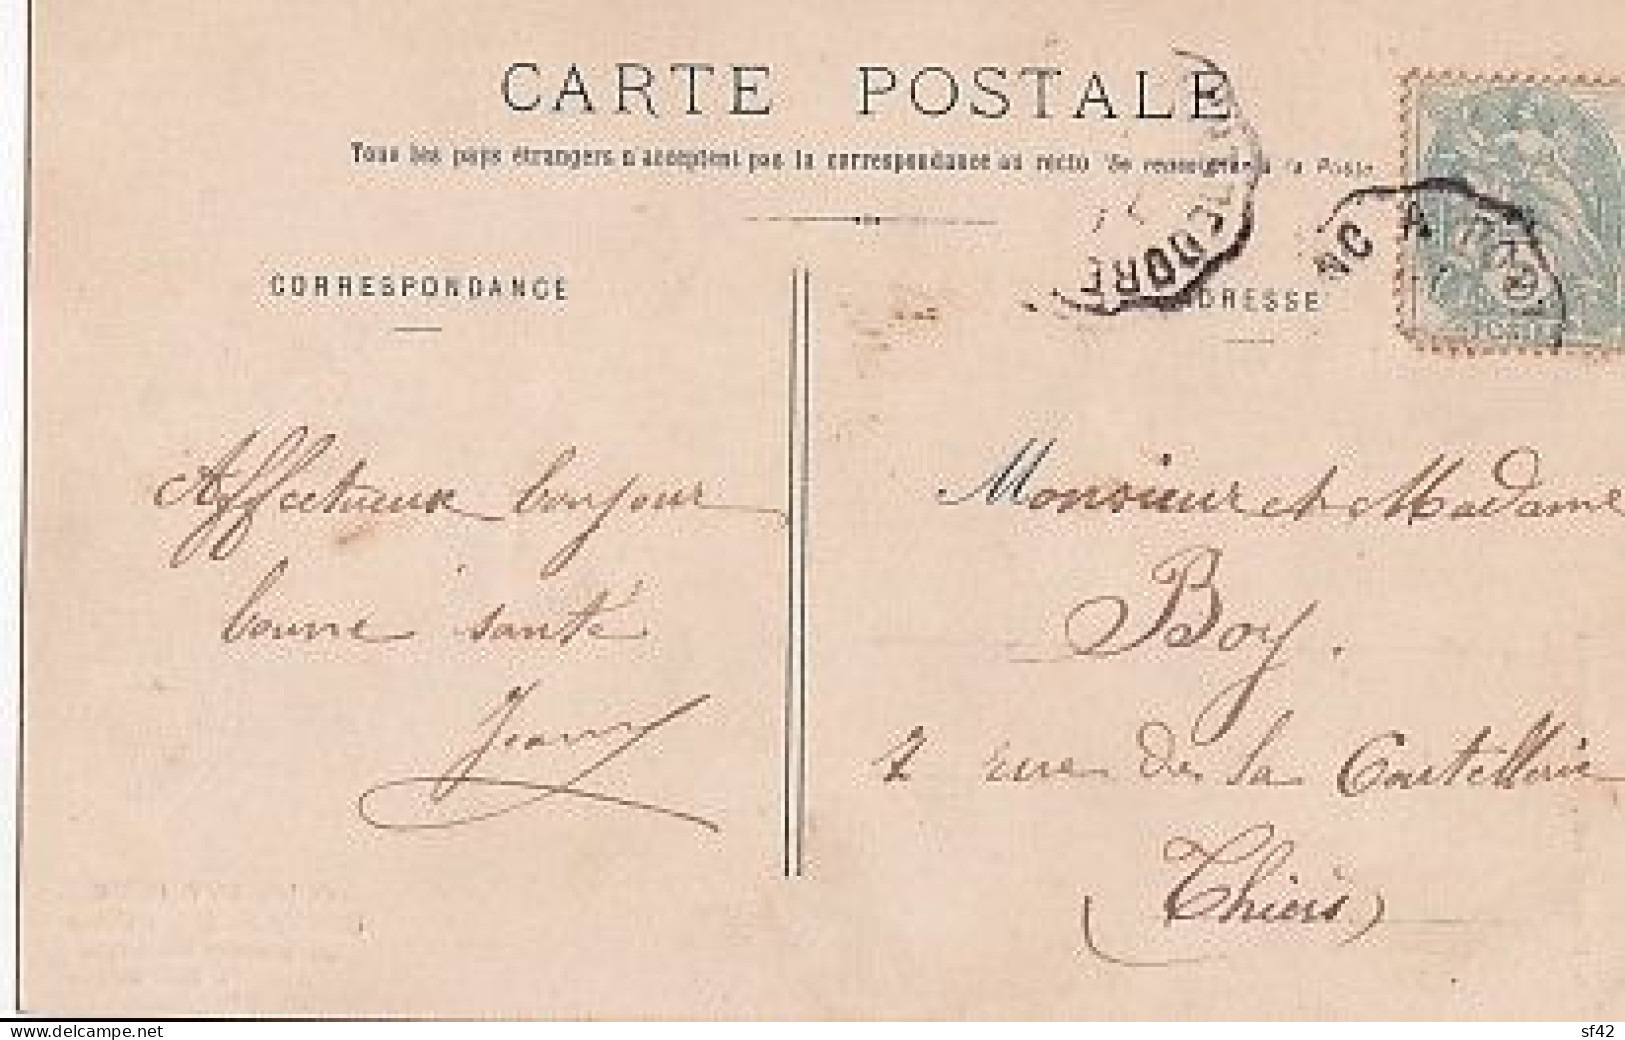 CARTE POSTALE
Tous les pays étrangers n'acceptent pas la correspondance au recto (Se renseigner à la Poste
CORRESPONDANCE
ADRESSE
Affectueux bonjour
bonne santé
Jeany
Monsieur et Madame
Boy.
2 rue de la
(Thiers)
delcampe.net
sf42